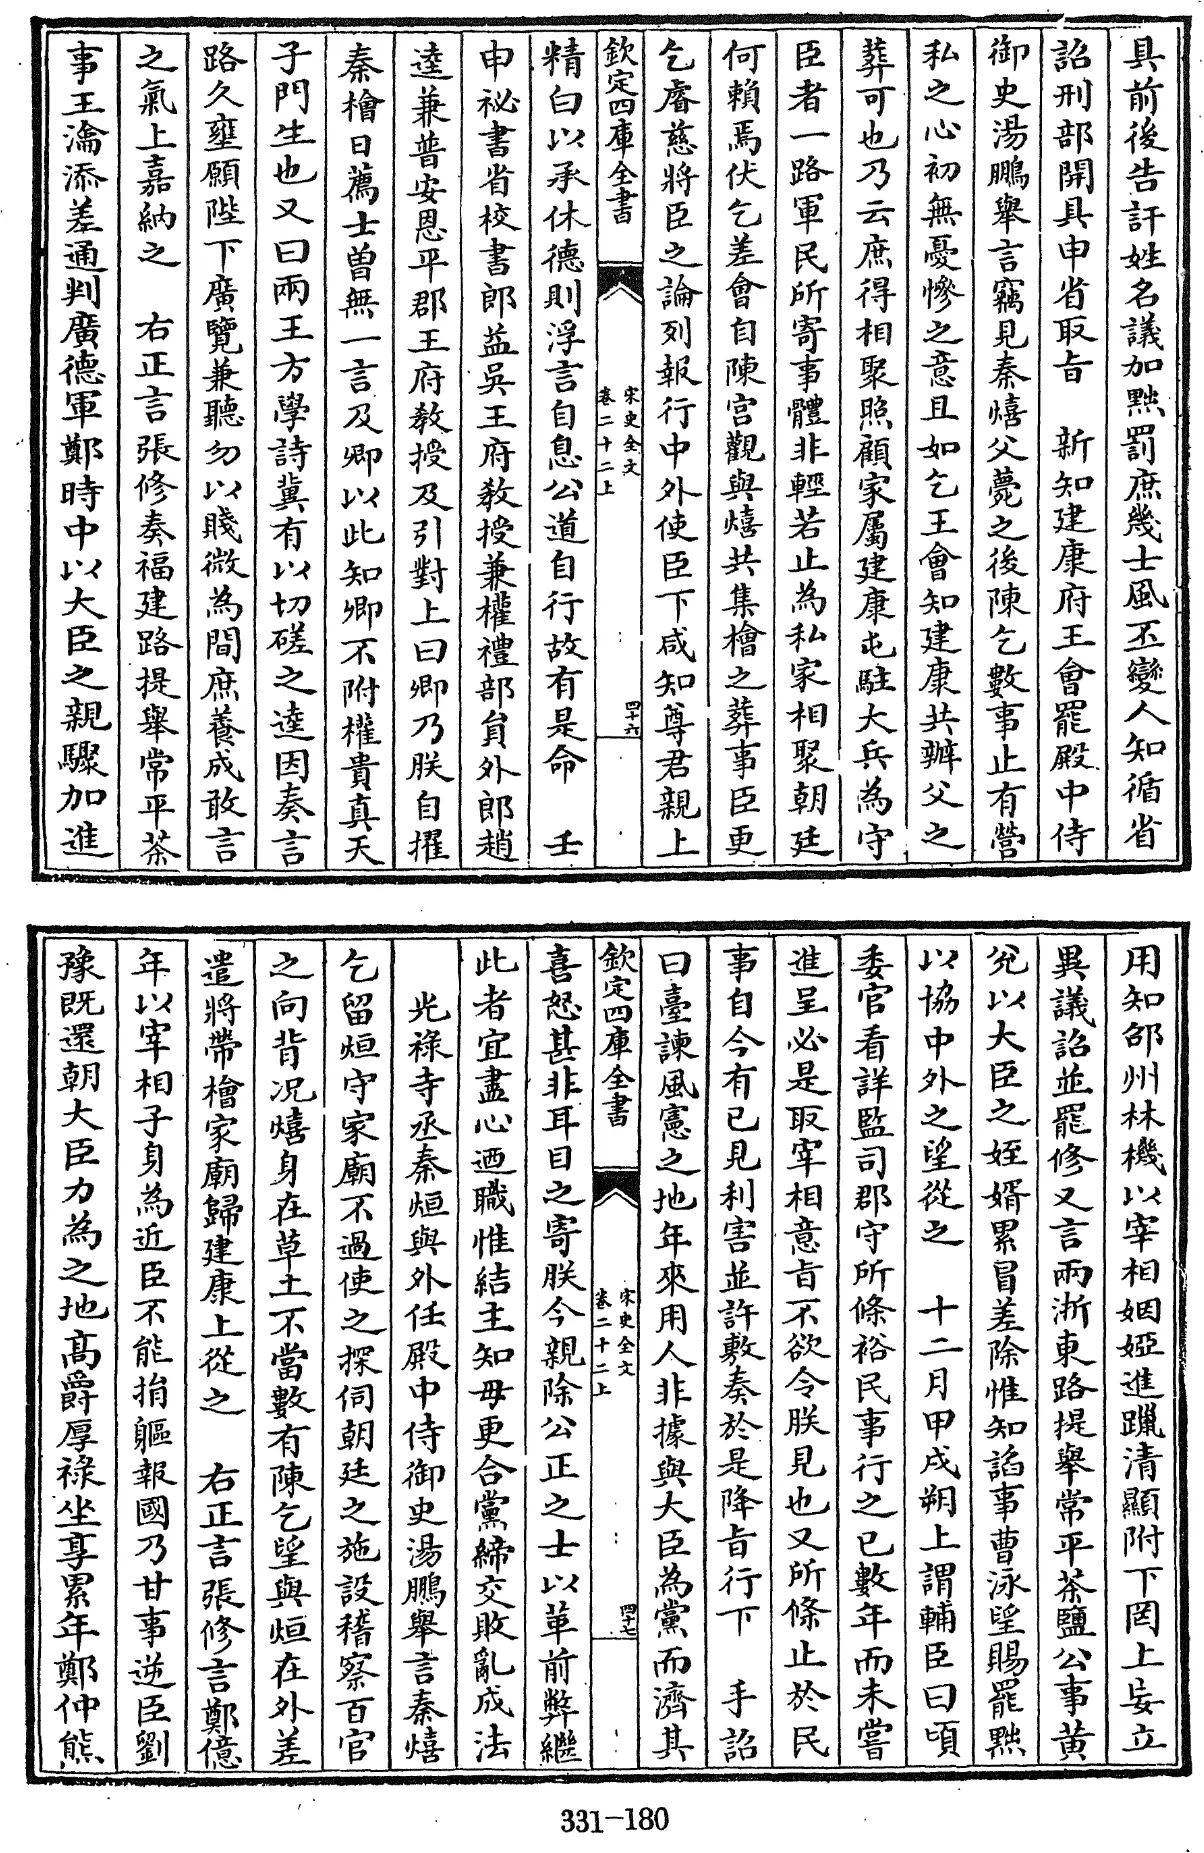 具前後告訐姓名議加黜罰庶幾士風丕變人知循省
詔刑部開具申省取㫖　新知建康府王會罷殿中侍
御史湯鵬舉言竊見秦熺父薨之後陳乞數事止有營
私之心初無憂慘之意且如乞王會知建康共辦父之
葬可也乃云庶得相聚照顧家屬建康屯駐大兵為守
臣者一路軍民所寄事體非輕若止為私家相聚朝廷
何賴焉伏乞差會自陳宫觀與熺共集檜之葬事臣更
乞睿慈將臣之論列報行中外使臣下咸知尊君親上
欽定四庫全書
宋史全文
卷二十二上
四十六
精白以承休德則浮言自息公道自行故有是命　壬
申祕書省校書郎益吳王府教授兼權禮部員外郎趙
逵兼普安恩平郡王府教授及引對上曰卿乃朕自擢
秦檜日薦士曽無一言及卿以此知卿不附權貴真天
子門生也又曰兩王方學詩冀有以切磋之逵因奏言
路久壅願陛下廣覽兼聽勿以賤微為間庶養成敢言
之氣上嘉納之　右正言張修奏福建路提舉常平茶
事王瀹添差通判廣德軍鄭時中以大臣之親驟加進
用知邵州林機以宰相姻婭進躐清顯附下罔上妄立
異議詔並罷修又言兩浙東路提舉常平茶鹽公事黄
兊以大臣之姪婿累冒差除惟知諂事曹泳望賜罷黜
以協中外之望從之　十二月甲戌朔上謂輔臣曰頃
委官看詳監司郡守所條裕民事行之已數年而未嘗
進呈必是取宰相意㫖不欲令朕見也又所條止於民
事自今有已見利害並許敷奏於是降㫖行下　手詔
曰臺諫風憲之地年來用人非據與大臣為黨而濟其
欽定四庫全書
宋史全文
卷二十二上
四十七
喜怒甚非耳目之寄朕今親除公正之士以革前弊繼
此者宜盡心廼職惟結主知毋更合黨締交敗亂成法
光祿寺丞秦烜與外任殿中侍御史湯鵬舉言秦熺
乞留烜守家廟不過使之探伺朝廷之施設稽察百官
之向背况熺身在草土不當數有陳乞望與烜在外差
遣將帶檜家廟歸建康上從之　右正言張修言鄭億
年以宰相子身為近臣不能捐軀報國乃甘事逆臣劉
豫既還朝大臣力為之地髙爵厚祿坐享累年鄭仲熊
331-180